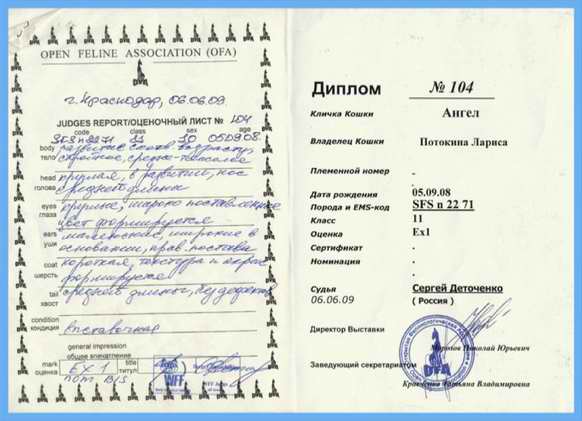 OPEN FELINE ASSOCIATION (OFA)
г. Краснодар, 06.06.09.
JUDGES REPORT/ОЦЕНОЧНЫЙ ЛИСТ № 104
code class sex age
SFS n 22 71 11 1.0 050908
body
тело
head
голова
среднего
eyes
глаза
широко
цвет формируется
ears
уши
маленькие, широкие в
основании, прав. постава
coat
шерсть
короткая, текстура и окрас
формируется
tail
хвост
средней длины, без дефектов
condition
кондиция
выставочная
general impression
общее впечатление
mark
оценка
title
титул
EX 1
ном. BIS
WFF
Диплом № 104
Кличка Кошки Ангел
Владелец Кошки Потокина Лариса
Племенной номер -
Дата рождения 05.09.08
Порода и EMS-код SFS n 22 71
Класс 11
Оценка Ex1
Сертификат -
Номинация -
Судья Сергей Деточенко
06.06.09 ( Россия )
Директор Выставки
Николай Юрьевич
Заведующий секретариатом
OFA
Татьяна Владимировна